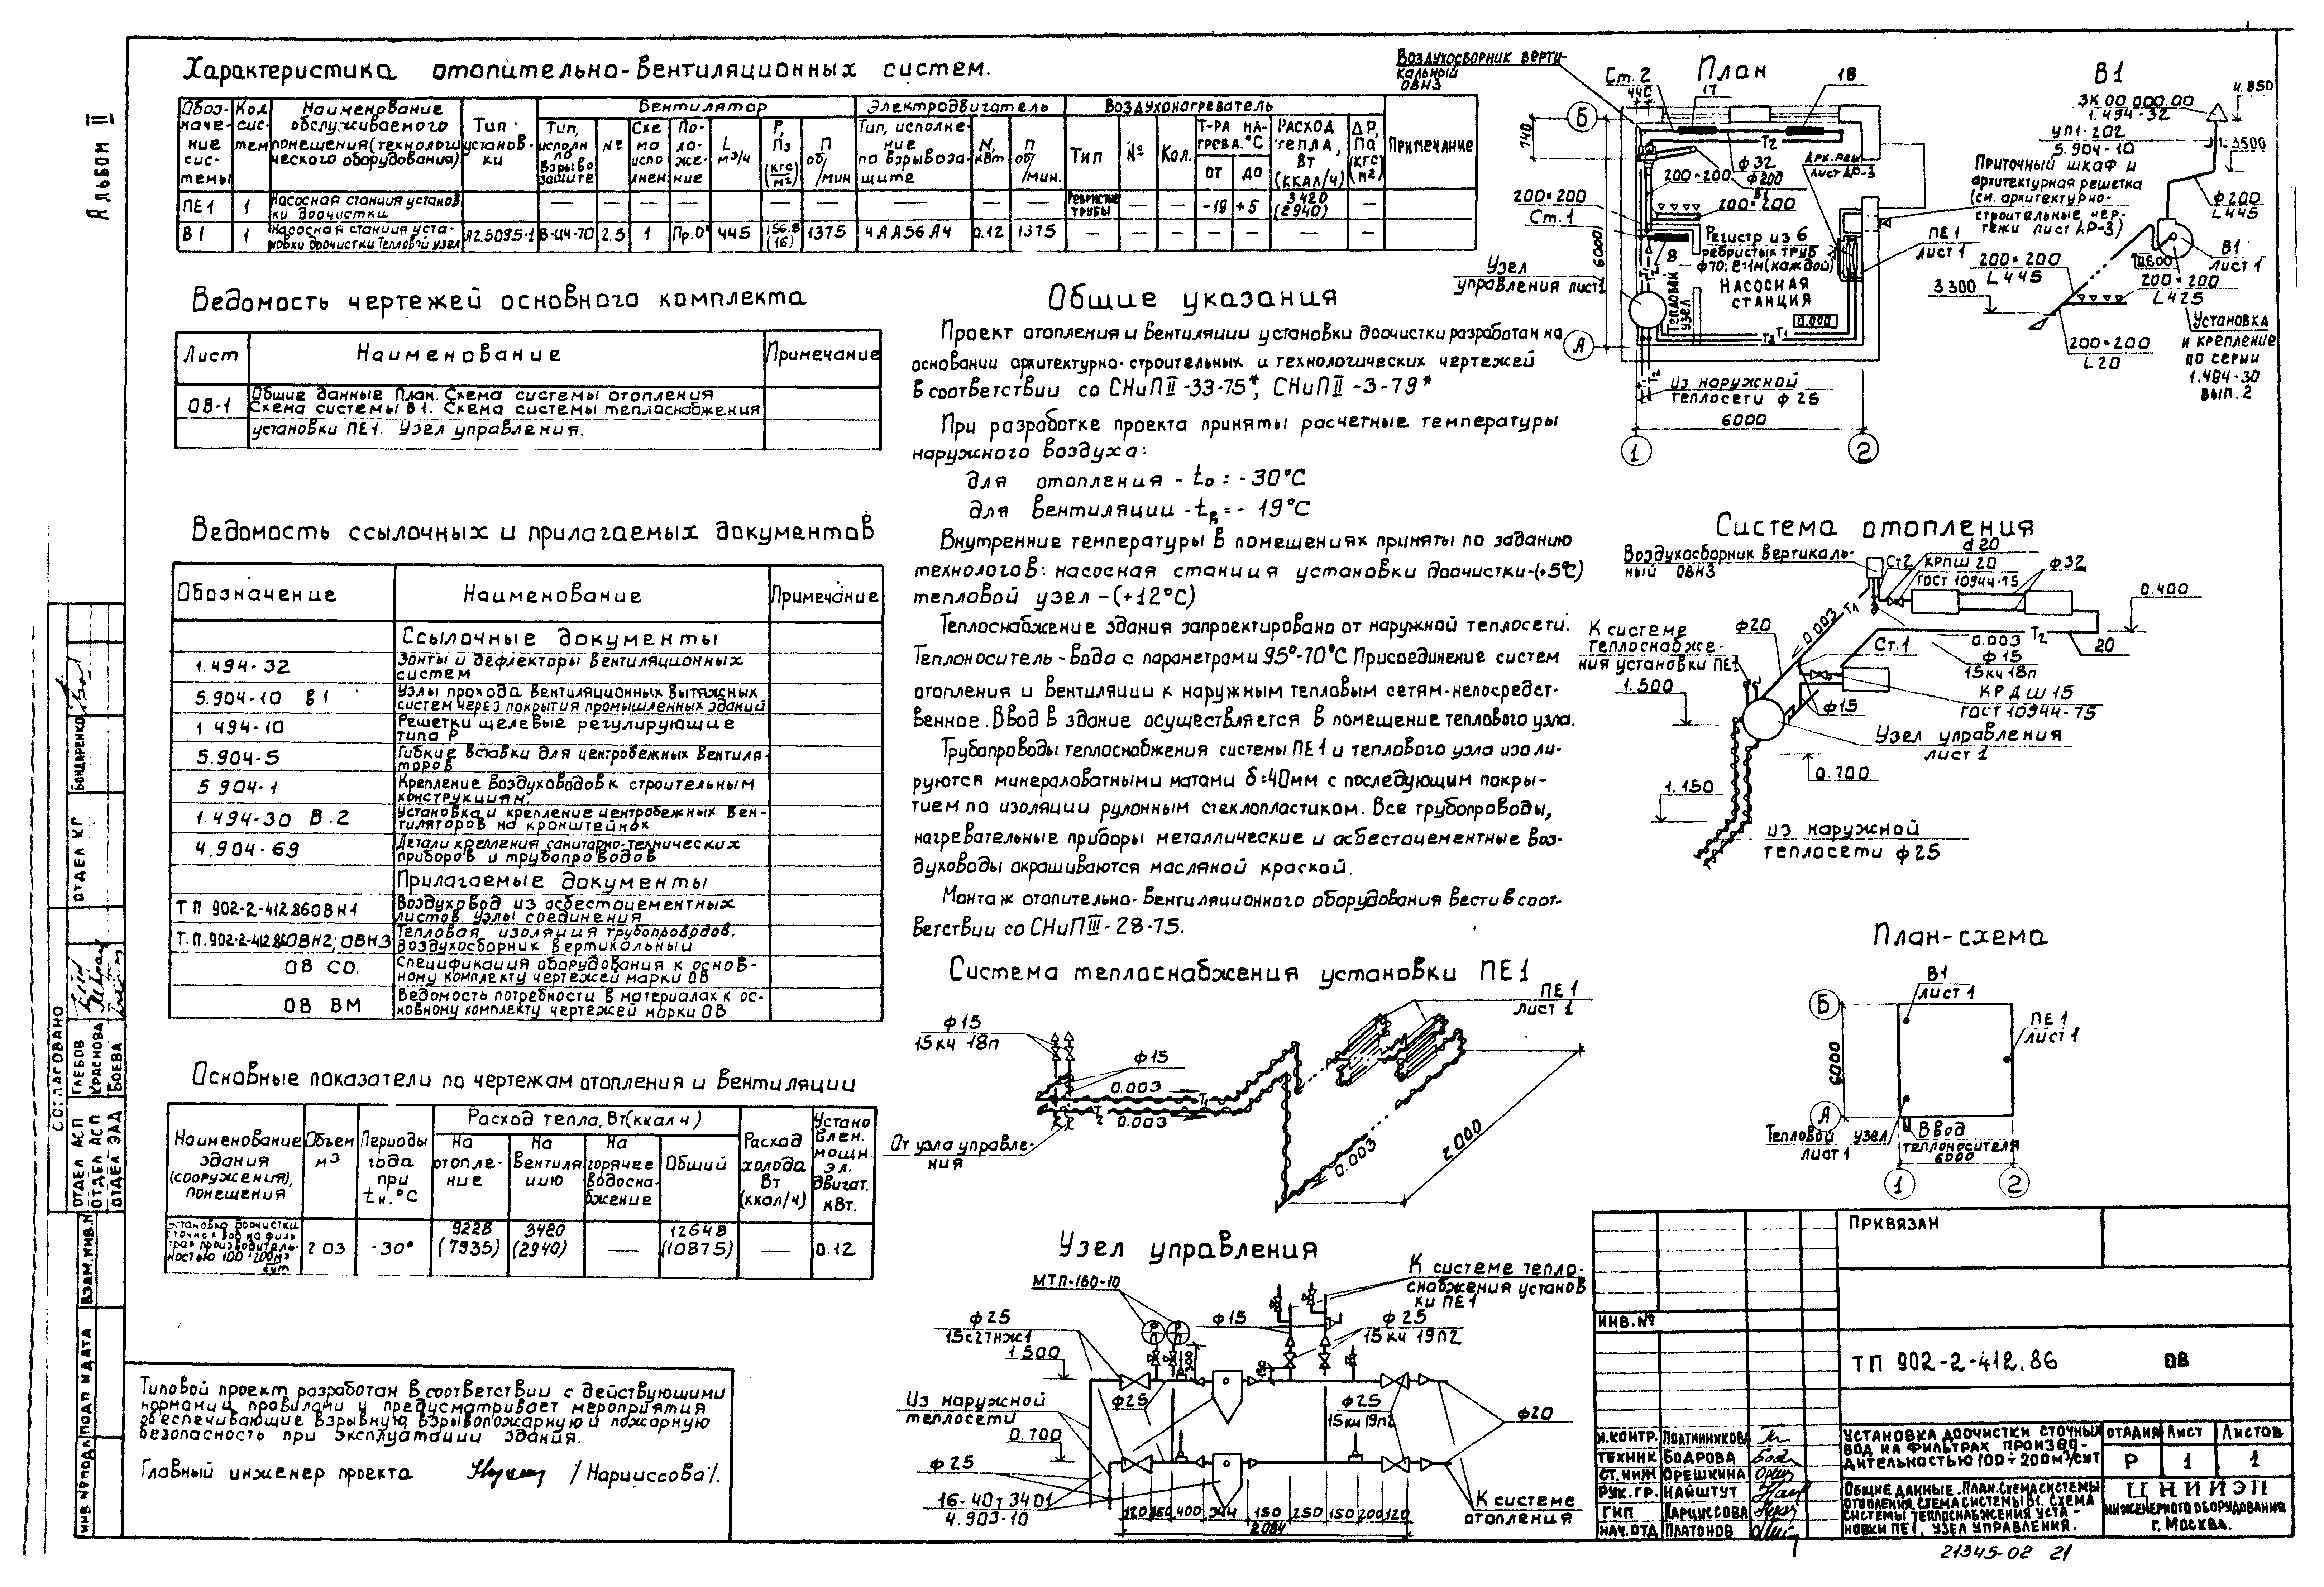 Альбом II
Характеристика отопительно-вентиляционных систем.
Обоз-
наче-
ние
сис-
темы
Кол
сис-
тем
Наименование
обслуживаемого
помещения (технологи
ческого оборудования)
Тип
установ-
ки
Вентилятор
Тип,
исполн
по
взрыво
защите
№
Схе
ма
испо
лнен.
По-
ло-
же-
ние
L
м3/ч
Р,
Па
(кгс/м2)
П
об/мин
Электродвигатель
Тип, исполне-
ние
по взрывоза-
щите
N,
кВт
П
об/мин.
Воздухонагреватель
Тип
№
Кол.
Т-ра на-
грева. °С
от
до
Расход
тепла,
Вт
(ккал/ч)
ΔР,
Па
(кгс/м2)
Примечание
ПЕ1 1 Насосная станция установ
ки доочистки — — — — — — — — — — — Ребристые
трубы — — -19 +5 3420
(2940) —
В1 1 Насосная станция уста-
новки доочистки Тепловой узел А2.5095-1 В-Ц4-70 2.5 1 Пр.0° 445 156.8
(16) 1375 4АА56А4 0.12 1375 — — — — — — —
Ведомость чертежей основного комплекта
Лист Наименование Примечание
ОВ-1 Общие данные План. Схема системы отопления
Схема системы В1. Схема системы теплоснабжения
установки ПЕ1. Узел управления.
Ведомость ссылочных и прилагаемых документов
Обозначение Наименование Примечание
Ссылочные документы
1.494-32 Зонты и дефлекторы вентиляционных
систем
5.904-10 В1 Узлы прохода вентиляционных вытяжных
систем через покрытия промышленных зданий
1 494-10 Решетки щелевые регулирующие
типа Р
5.904-5 Гибкие вставки для центробежных вентиля-
торов
5 904-1 Крепление воздуховодов к строительным
конструкциям.
1.494-30 В.2 Установка и крепление центробежных вен-
тиляторов на кронштейнах
4.904-69 Детали крепления санитарно-технических
приборов и трубопроводов
Прилагаемые документы
ТП 902-2-412.86ОВН1 Воздуховод из асбестоцементных
листов. Узлы соединения
Т.П.902-2-412.86ОВН2; ОВН3 Тепловая изоляция трубопроводов.
Воздухосборник вертикальный
ОВ СО. Спецификация оборудования к основ-
ному комплекту чертежей марки ОВ
ОВ ВМ Ведомость потребности в материалах к ос-
новному комплекту чертежей марки ОВ
Основные показатели по чертежам отопления и вентиляции
Наименование
здания
(сооружения),
помещения
Объем
м3
Периоды
года
при
tн.°С
Расход тепла, Вт (ккал ч)
На
отопле-
ние
На
вентиля
цию
На
горячее
водосна-
бжение
Общий
Расход
холода
Вт
(ккал/ч)
Устано
влен.
мощн.
эл.
двигат.
кВт.
Установка доочистки
сточных вод на филь
трах производитель-
ностью 100÷200м3
сут
203 -30° 9228
(7935) 3420
(2940) — 12648
(10875) — 0.12
Типовой проект разработан в соответствии с действующими
нормами и правилами и предусматривает мероприятия
обеспечивающие взрывную, взрывопожарную и пожарную
безопасность при эксплуатации здания.
Главный инженер проекта /Нарциссова/.
Общие указания
Проект отопления и вентиляции установки доочистки разработан на
основании архитектурно-строительных и технологических чертежей
в соответствии со СНиП II-33-75*, СНиП II-3-79*
При разработке проекта приняты расчетные температуры
наружного воздуха:
для отопления - to = -30°С
для вентиляции - tв = -19°С
Внутренние температуры в помещениях приняты по заданию
технологов: насосная станция установки доочистки-(+5°С)
тепловой узел -(+12°С)
Теплоснабжение здания запроектировано от наружной теплосети.
Теплоноситель - вода с параметрами 95°-70°С Присоединение систем
отопления и вентиляции к наружным тепловым сетям-непосредст-
венное. Ввод в здание осуществляется в помещение теплового узла.
Трубопроводы теплоснабжения системы ПЕ1 и теплового узла изоли-
руются минераловатными матами δ=40мм с последующим покры-
тием по изоляции рулонным стеклопластиком. Все трубопроводы,
нагревательные приборы металлические и асбестоцементные воз-
духоводы окрашиваются масляной краской.
Монтаж отопительно-вентиляционного оборудования вести в соот-
ветствии со СНиП III-28-75.
Система теплоснабжения установки ПЕ1
ПЕ1
лист 1
ф15
15кч 18п
ф15
0.003
Т1
Т2
0.003
От узла управле-
ния
0.003
2000
Узел управления
МТП-160-10
К системе тепло-
снабжения установ
ки ПЕ1
ф25
15с27нж1
ф15
ф25
15 кч 19п2
1 500
300
150
Из наружной
теплосети
ф25
ф25
15кч 19п2
ф20
0.700
ф25
16-40т 34 01
4.903-10
К системе
отопления
120 350 400 344 150 250 150 200 120
2084
План
Воздухосборник верти-
кальный
ОВН3
Ст. 2
440
17
18
Б
740
Т2
ф32
ф200
В1
Арх.реш.
лист АР-3
200×200
200×200
Ст. 1
200×200
6000
8
Регистр из 6
ребристых труб
ф70; ℓ=1м(каждой)
Насосная
станция
0.000
Узел
управления лист1
Тепловой
узел
ПЕ1
лист 1
Приточный шкаф и
архитектурная решетка
(см. архитектурно-
строительные чер-
тежи лист АР-3)
А
Т1
Т2
Из наружной
теплосети ф 25
6000
1
2
В1
4.850
ЗК 00.000.00
1.494-32
УП1-202
5.904-10
3500
ф200
L445
В1
лист 1
200×200
L445
200×200
L425
3300
200×200
L20
Установка
и крепление
по серии
1.494-30
вып. 2
Система отопления
Воздухосборник вертикаль-
ный ОВН3
Ст2
d20
КРПШ 20
ГОСТ 10944-75
ф32
0.400
К системе
теплоснабже-
ния установки ПЕ1
ф20
0.003
Т1
Ст.1
0.003
Т2
20
ф15
15кч 18п
1.500
КРДШ 15
ГОСТ 10944-75
ф15
Узел управления
лист 1
0.700
1.150
из наружной
теплосети ф25
План-схема
В1
лист 1
Б
ПЕ1
лист 1
6000
А
Тепловой узел
лист 1
Ввод
теплоносителя
6000
1
2
Привязан
Инв.№
ТП 902-2-412.86 ОВ
Н.контр. Полтинникова
Техник Бодрова
Ст.инж Орешкина
Рук.гр. Найштут
ГИП Нарциссова
Нач.отд Платонов
Установка доочистки сточных
вод на фильтрах произво-
дительностью 100÷200м3/сут
Стадия Лист Листов
Р 1 1
Общие данные. План. Схема системы
отопления. Схема системы В1. Схема
системы теплоснабжения уста-
новки ПЕ1. Узел управления.
ЦНИИЭП
инженерного оборудования
г. Москва.
21345-02 21
Согласовано
Отдел АСП Глебов
Отдел АСП Краснова
Отдел ЭАД Боева
Отдел КГ Бондаренко
Взам.инв.№
Подп и дата
Инв №подл